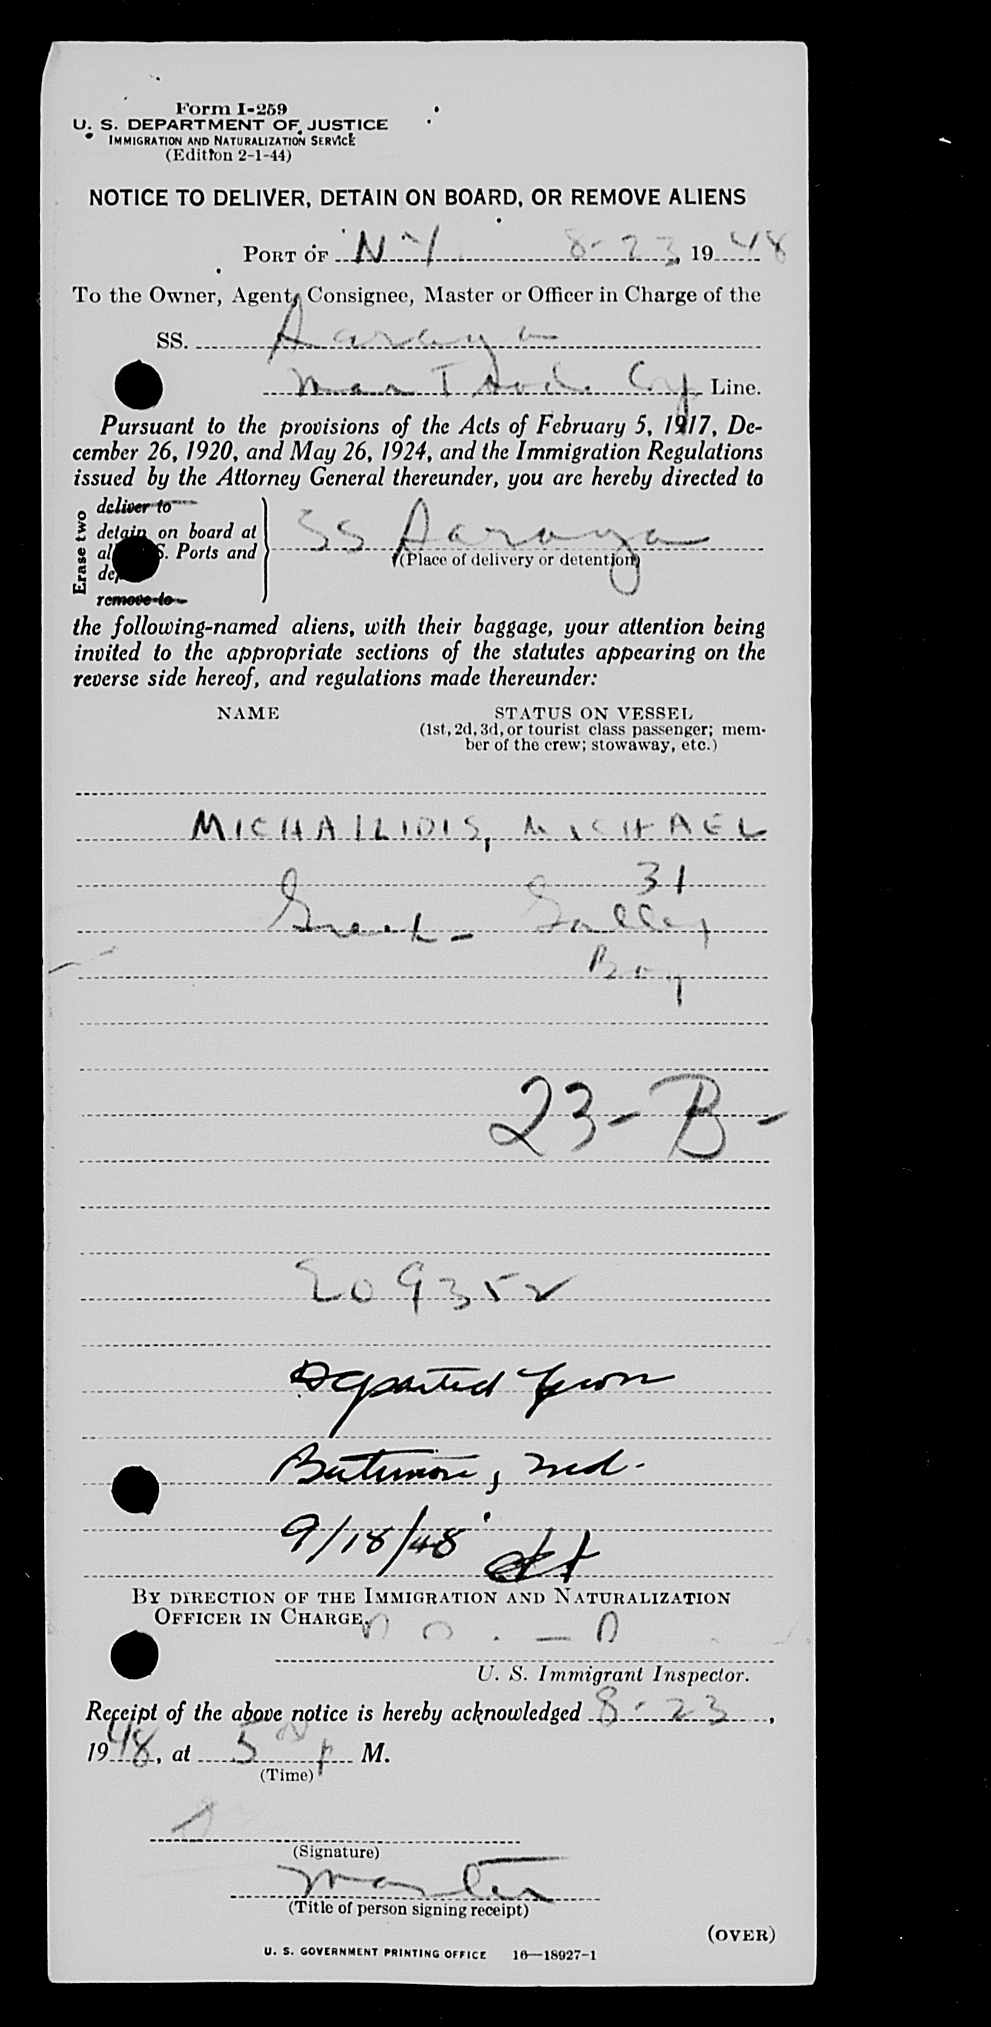 Form I-259
U. S. DEPARTMENT OF JUSTICE
IMMIGRATION AND NATURALIZATION SERVICE
(Edition 2-1-44)
NOTICE TO DELIVER, DETAIN ON BOARD, OR REMOVE ALIENS
PORT OF NY 8-23, 1948
To the Owner, Agent, Consignee, Master or Officer in Charge of the
SS. Aaraya
Line.
Pursuant to the provisions of the Acts of February 5, 1917, De-
cember 26, 1920, and May 26, 1924, and the Immigration Regulations
issued by the Attorney General thereunder, you are hereby directed to
Erase two
deliver to
detain on board at
S. Ports and
remove to
SS Aaraya
(Place of delivery or detention)
the following-named aliens, with their baggage, your attention being
invited to the appropriate sections of the statutes appearing on the
reverse side hereof, and regulations made thereunder:
NAME STATUS ON VESSEL
(1st, 2d, 3d, or tourist class passenger; mem-
ber of the crew; stowaway, etc.)
MICHAILIDIS, MICHAEL
31
Greek - Galley
Boy
23-B-
209352
Departed from
Baltimore, Md.
9/18/48
BY DIRECTION OF THE IMMIGRATION AND NATURALIZATION
OFFICER IN CHARGE,
U. S. Immigrant Inspector.
Receipt of the above notice is hereby acknowledged 8-23,
1948, at 5 p M.
(Time)
(Signature)
Master
(Title of person signing receipt)
(OVER)
U. S. GOVERNMENT PRINTING OFFICE 16—18927-1